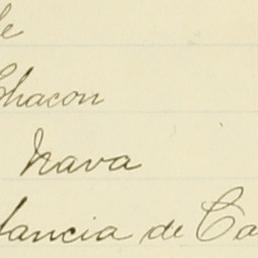 le
Chacon
Nava
tancia de Ca